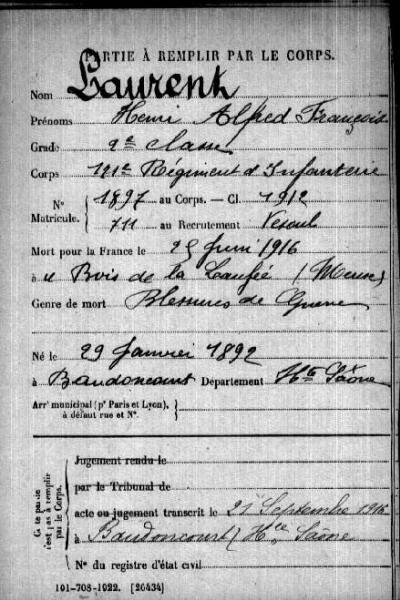 PARTIE À REMPLIR PAR LE CORPS.
Nom Laurent
Prénoms Henri Alfred François
Grade 2e classe
Corps Régiment d'Infanterie
Nº Matricule. { 1897 au Corps. — Cl. 1912
711 au Recrutement Vesoul
Mort pour la France le 25 Juin 1916
à Bois de la Laufée (Meuse)
Genre de mort Blessures de Guerre
Né le 29 Janvier 1892
à Baudoncourt Département Hte Saône
Arrt municipal (pr Paris et Lyon), à défaut rue et Nº. }
Cette partie n'est pas à remplir par le Corps.
Jugement rendu le
par le Tribunal de
acte ou jugement transcrit le 21 Septembre 1916
à Baudoncourt (Hte Saône
Nº du registre d'état civil
101-708-1922. [26434]